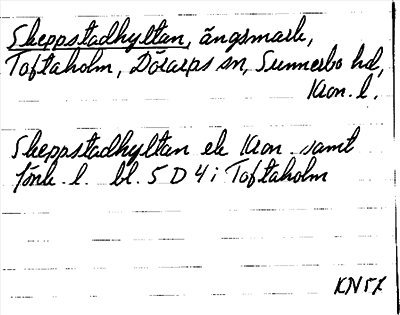 Skeppstadhyltan, ängsmark,
Toftaholm, Dörarps sn, Sunnerbo hd,
Kron. l.
Skeppstadhyltan ek Kron. samt
Jönk. l. bl. 5 D 4 i Toftaholm
KN57